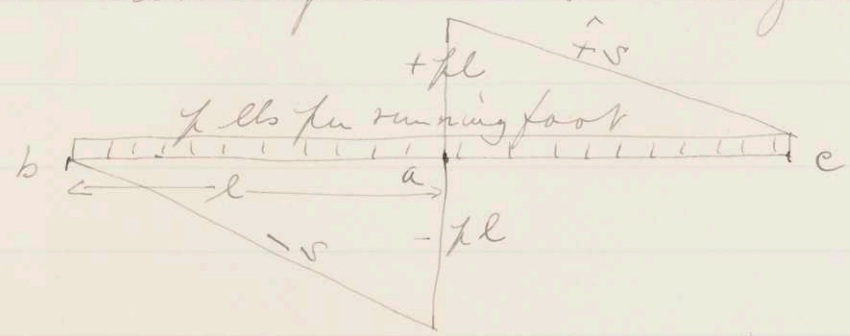 + s
+ pl
p lbs per running foot
b
a
c
l
- pl
- s